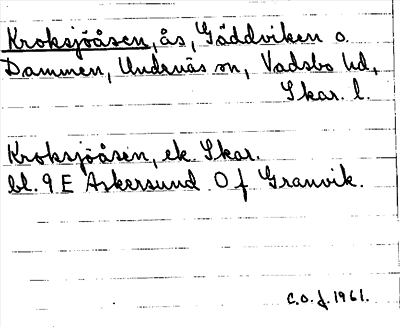 Kroksjöåsen, ås, Gäddviken o.
Dammen, Undenäs sn, Vadsbo hd,
Skar. l.
Kroksjöåsen, ek. Skar.
bl. 9 E Askersund O f Granvik.
C.O.J. 1961.